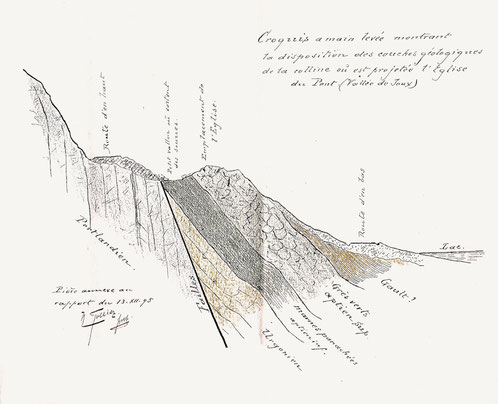 Croquis a main levée montrant
la disposition des couches géologiques
de la colline où est projetée l'Eglise
du Pont (Vallée de Joux)
Route d'en haut
Petit vallon où sortent
des sources
Emplacement de
l'Eglise.
Route d'en bas
Lac.
Portlandien.
Failles
Urgonien
marnes panachées
aptien inf.
Grès verts
aptien sup
Gault?
Pièce annexe au
rapport du 13.XII.95